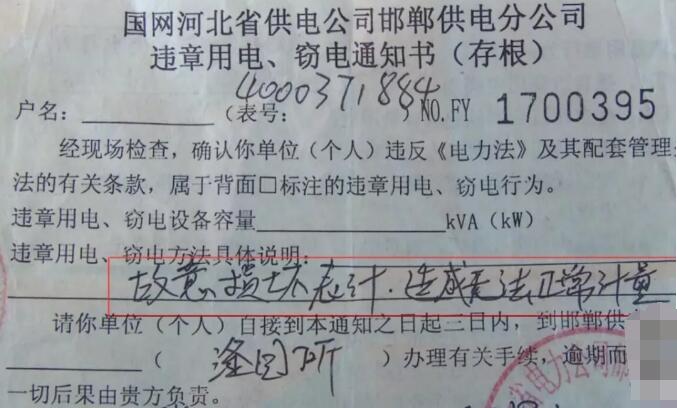 国网河北省供电公司邯郸供电分公司
违章用电、窃电通知书（存根）
户名： （表号：4000371884 ）NO.FY 1700395
经现场检查，确认你单位（个人）违反《电力法》及其配套管理
法的有关条款，属于背面□标注的违章用电、窃电行为。
违章用电、窃电设备容量 kVA（kW）
违章用电、窃电方法具体说明：
故意损坏表计.造成无法正常计量
请你单位（个人）自接到本通知之日起三日内，到邯郸供
（ 所 ）办理有关手续，逾期而
一切后果由贵方负责。
省电力公司邯